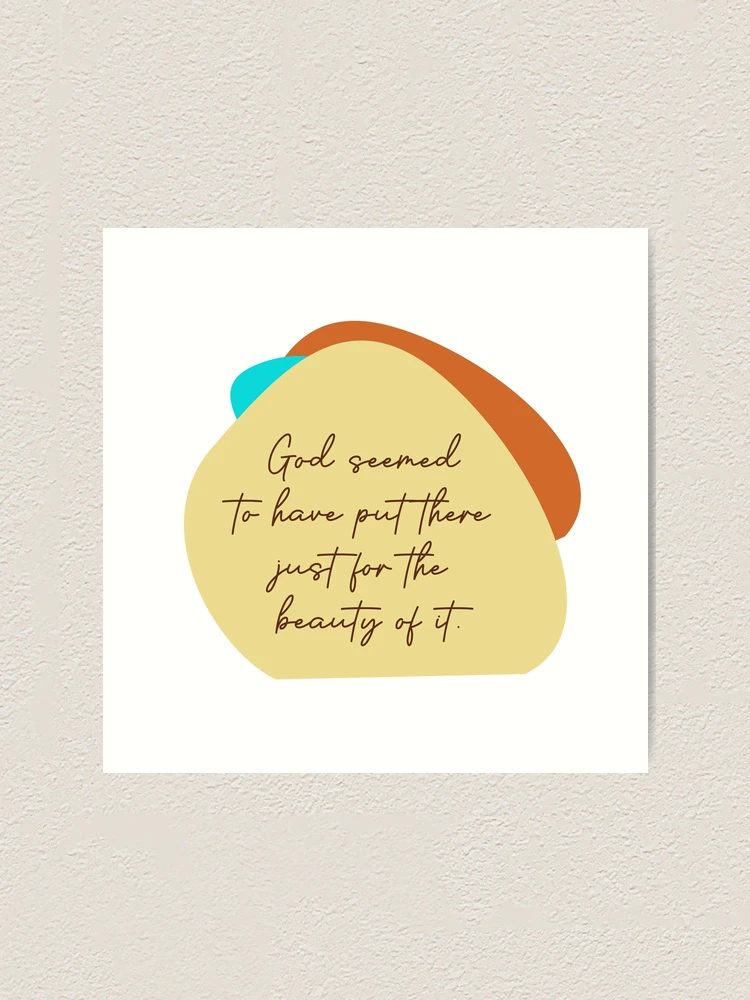 God seemed
to have put there
just for the
beauty of it.